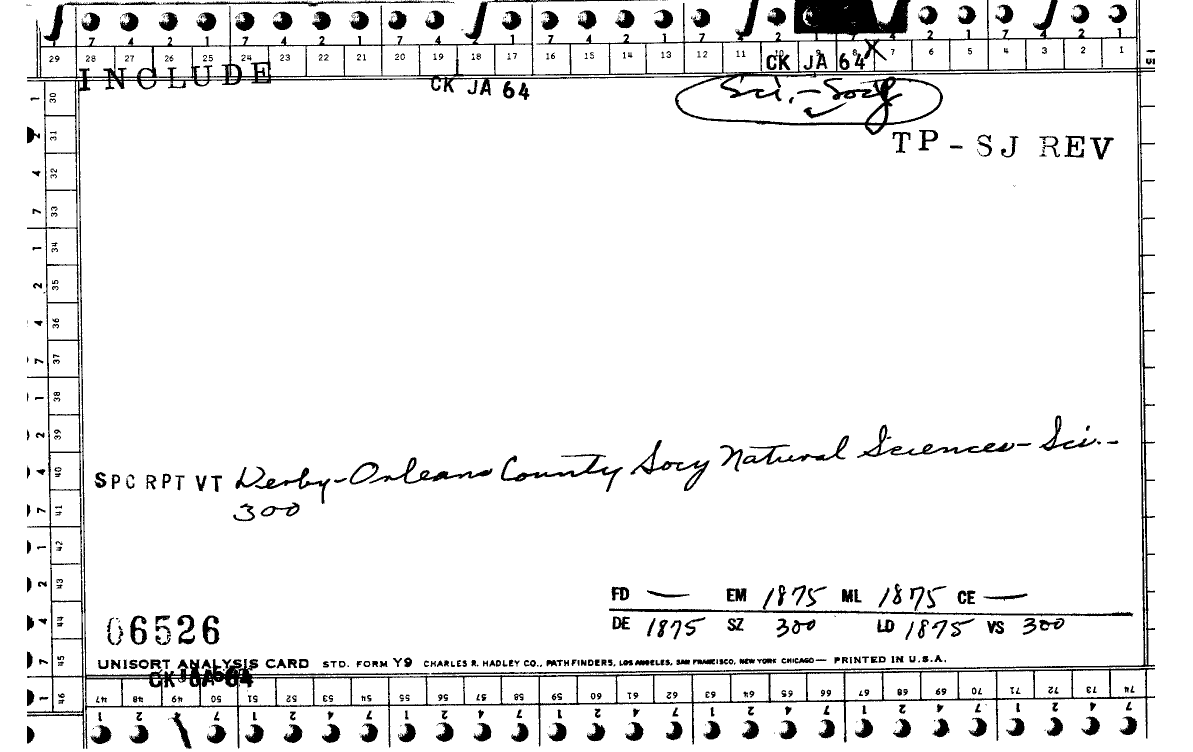 7 4 2 1 7 4 2 1 7 4 2 1 7 4 2 1 7 4 2 1 7 4 2 1
29 28 27 26 25 24 23 22 21 20 19 18 17 16 15 14 13 12 11 10 9 8 7 6 5 4 3 2 1
INCLUDE CK JA 64 CK JA 64 X
Sci.-Socy
TP-SJ REV
1 30
2 31
4 32
7 33
1 34
2 35
4 36
7 37
1 38
2 39
4 40
7 41
1 42
2 43
4 44
7 45
1 46
SPC RPT VT Derby-Orleans County Socy Natural Sciences-Sci.-
300
FD — EM 1875 ML 1875 CE —
DE 1875 SZ 300 LD 1875 VS 300
06526
UNISORT ANALYSIS CARD STD. FORM Y9 CHARLES R. HADLEY CO., PATHFINDERS, LOS ANGELES, SAN FRANCISCO, NEW YORK CHICAGO— PRINTED IN U.S.A.
47 48 49 50 51 52 53 54 55 56 57 58 59 60 61 62 63 64 65 66 67 68 69 70 71 72 73 74
1 2 7 1 2 4 7 1 2 4 7 1 2 4 7 1 2 4 7 1 2 4 7 1 2 4 7